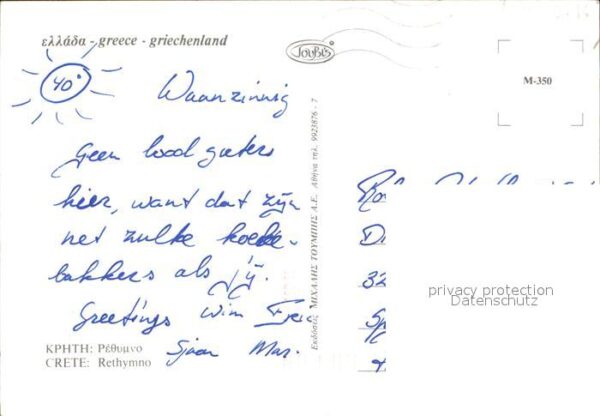 ελλάδα - greece - griechenland
40°
Waanzinnig
Geen lood gieters
hier, want dat zijn
net zulke koeke-
bakkers als jij.
Greetings Wim
Sjaan Mar.
ΚΡΗΤΗ: Ρέθυμνο
CRETE: Rethymno
Εκδόσεις ΜΙΧΑΛΗΣ ΤΟΥΜΠΗΣ Α.Ε. Αθήνα τηλ. 9923876 - 7
Τουβis
M-350
32
privacy protection
Datenschutz